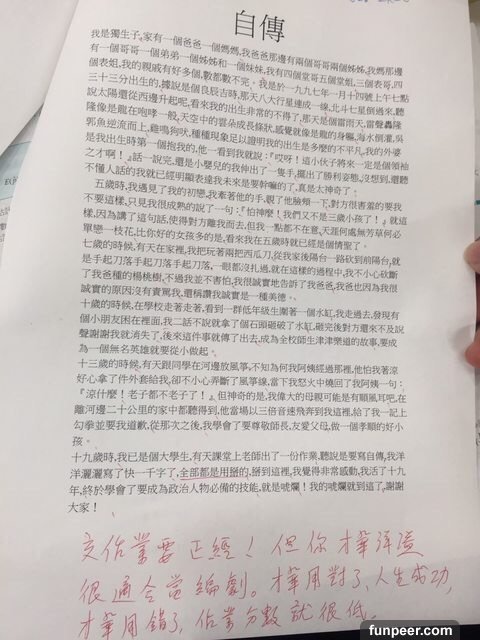 自傳
我是獨生子,家有一個爸爸一個媽媽,我爸爸那邊有兩個哥哥兩個姊姊,我媽那邊
有一個哥哥一個弟弟一個姊姊和一個妹妹,我有四個堂哥五個堂姐,三個表哥,四
個表姐,我的親戚有好多個,數都數不完。我是於一九九七年一月十四號上午七點
三十三分出生的,據說是個良辰吉時,那天八大行星連成一線,北斗七星倒過來,聽
說太陽還從西邊升起呢,看來我的出生非常的不得了,那天是個雷雨天,雷聲轟隆
隆像是龍在咆哮一般,天空中的雲朵成長條狀,感覺就像是龍的身軀,海水倒灌,吳
郭魚逆流而上,雞鳴狗吠,種種現象足以證明我的出生是多麼的不平凡,我的外婆
是我出生時第一個抱我的,他一看到我就說:『哎呀!這小伙子將來一定是個領袖
之才啊!』話一說完,還是小嬰兒的我伸出了一隻手,擺出了勝利姿態,沒想到,還聽
不懂人話的我就已經明顯表達我未來是要幹嘛的了,真是太神奇了:
五歲時,我遇見了我的初戀,我牽著他的手,親了他臉頰一下,對方很害羞的要我
不要這樣,只見我很成熟的說了一句:『怕神麼!我們又不是三歲小孩了!』就這
樣,因為講了這句話,使得對方離我而去,但我一點都不在意,天涯何處無芳草何必
單戀一枝花,比你好的女孩多的是,看來我在五歲時就已經是個情聖了。
七歲的時候,有天在家裡,我把玩著兩把西瓜刀,從我家後陽台一路砍到前陽台,就
是手起刀落手起刀落手起刀落,一眼都沒扎過,就在這樣的過程中,我不小心砍斷
了我爸種的楊桃樹,不過我並不害怕,我很誠實地告訴了我爸爸,我爸也因為我很
誠實的原因沒有責罵我,還稱讚我誠實是一種美德。
十歲的時候,在學校走著走著,看到一群低年級生圍著一個水缸,我走過去,發現有
個小朋友困在裡面,我二話不說就拿了個石頭砸破了水缸,砸完後對方還來不及說
聲謝謝我就消失了,後來這件事就傳了出去,成為全校師生津津樂道的故事,要成
為一個無名英雄就要從小做起。
十三歲的時候,有天跟同學在河邊放風箏,不知為何我阿姨經過那裡,他怕我著涼
好心拿了件外套給我,卻不小心弄斷了風箏線,當下我怒火中燒回了我阿姨一句:
『涼什麼!老子都不老子了!』但神奇的是,我偉大的母親可能是有順風耳吧,在
離河邊二十公里的家中都聽得到,他當場以三倍音速飛奔到我這裡,給了我一記上
勾拳並要我道歉,從那次之後,我學會了要尊敬師長,友愛父母,做一個孝順的好小
孩。
十九歲時,我已是個大學生,有天課堂上老師出了一份作業,聽說是要寫自傳,我洋
洋灑灑寫了快一千字了,全部都是用掰的,掰到這裡,我覺得非常感動,我活了十九
年,終於學會了要成為政治人物必備的技能,就是唬爛!我的唬爛就到這了,謝謝
大家!
交作業要正經!但你才華洋溢
很適合當編劇。才華用對了、人生成功,
才華用錯了,作業分數就很低.
funpeer.com